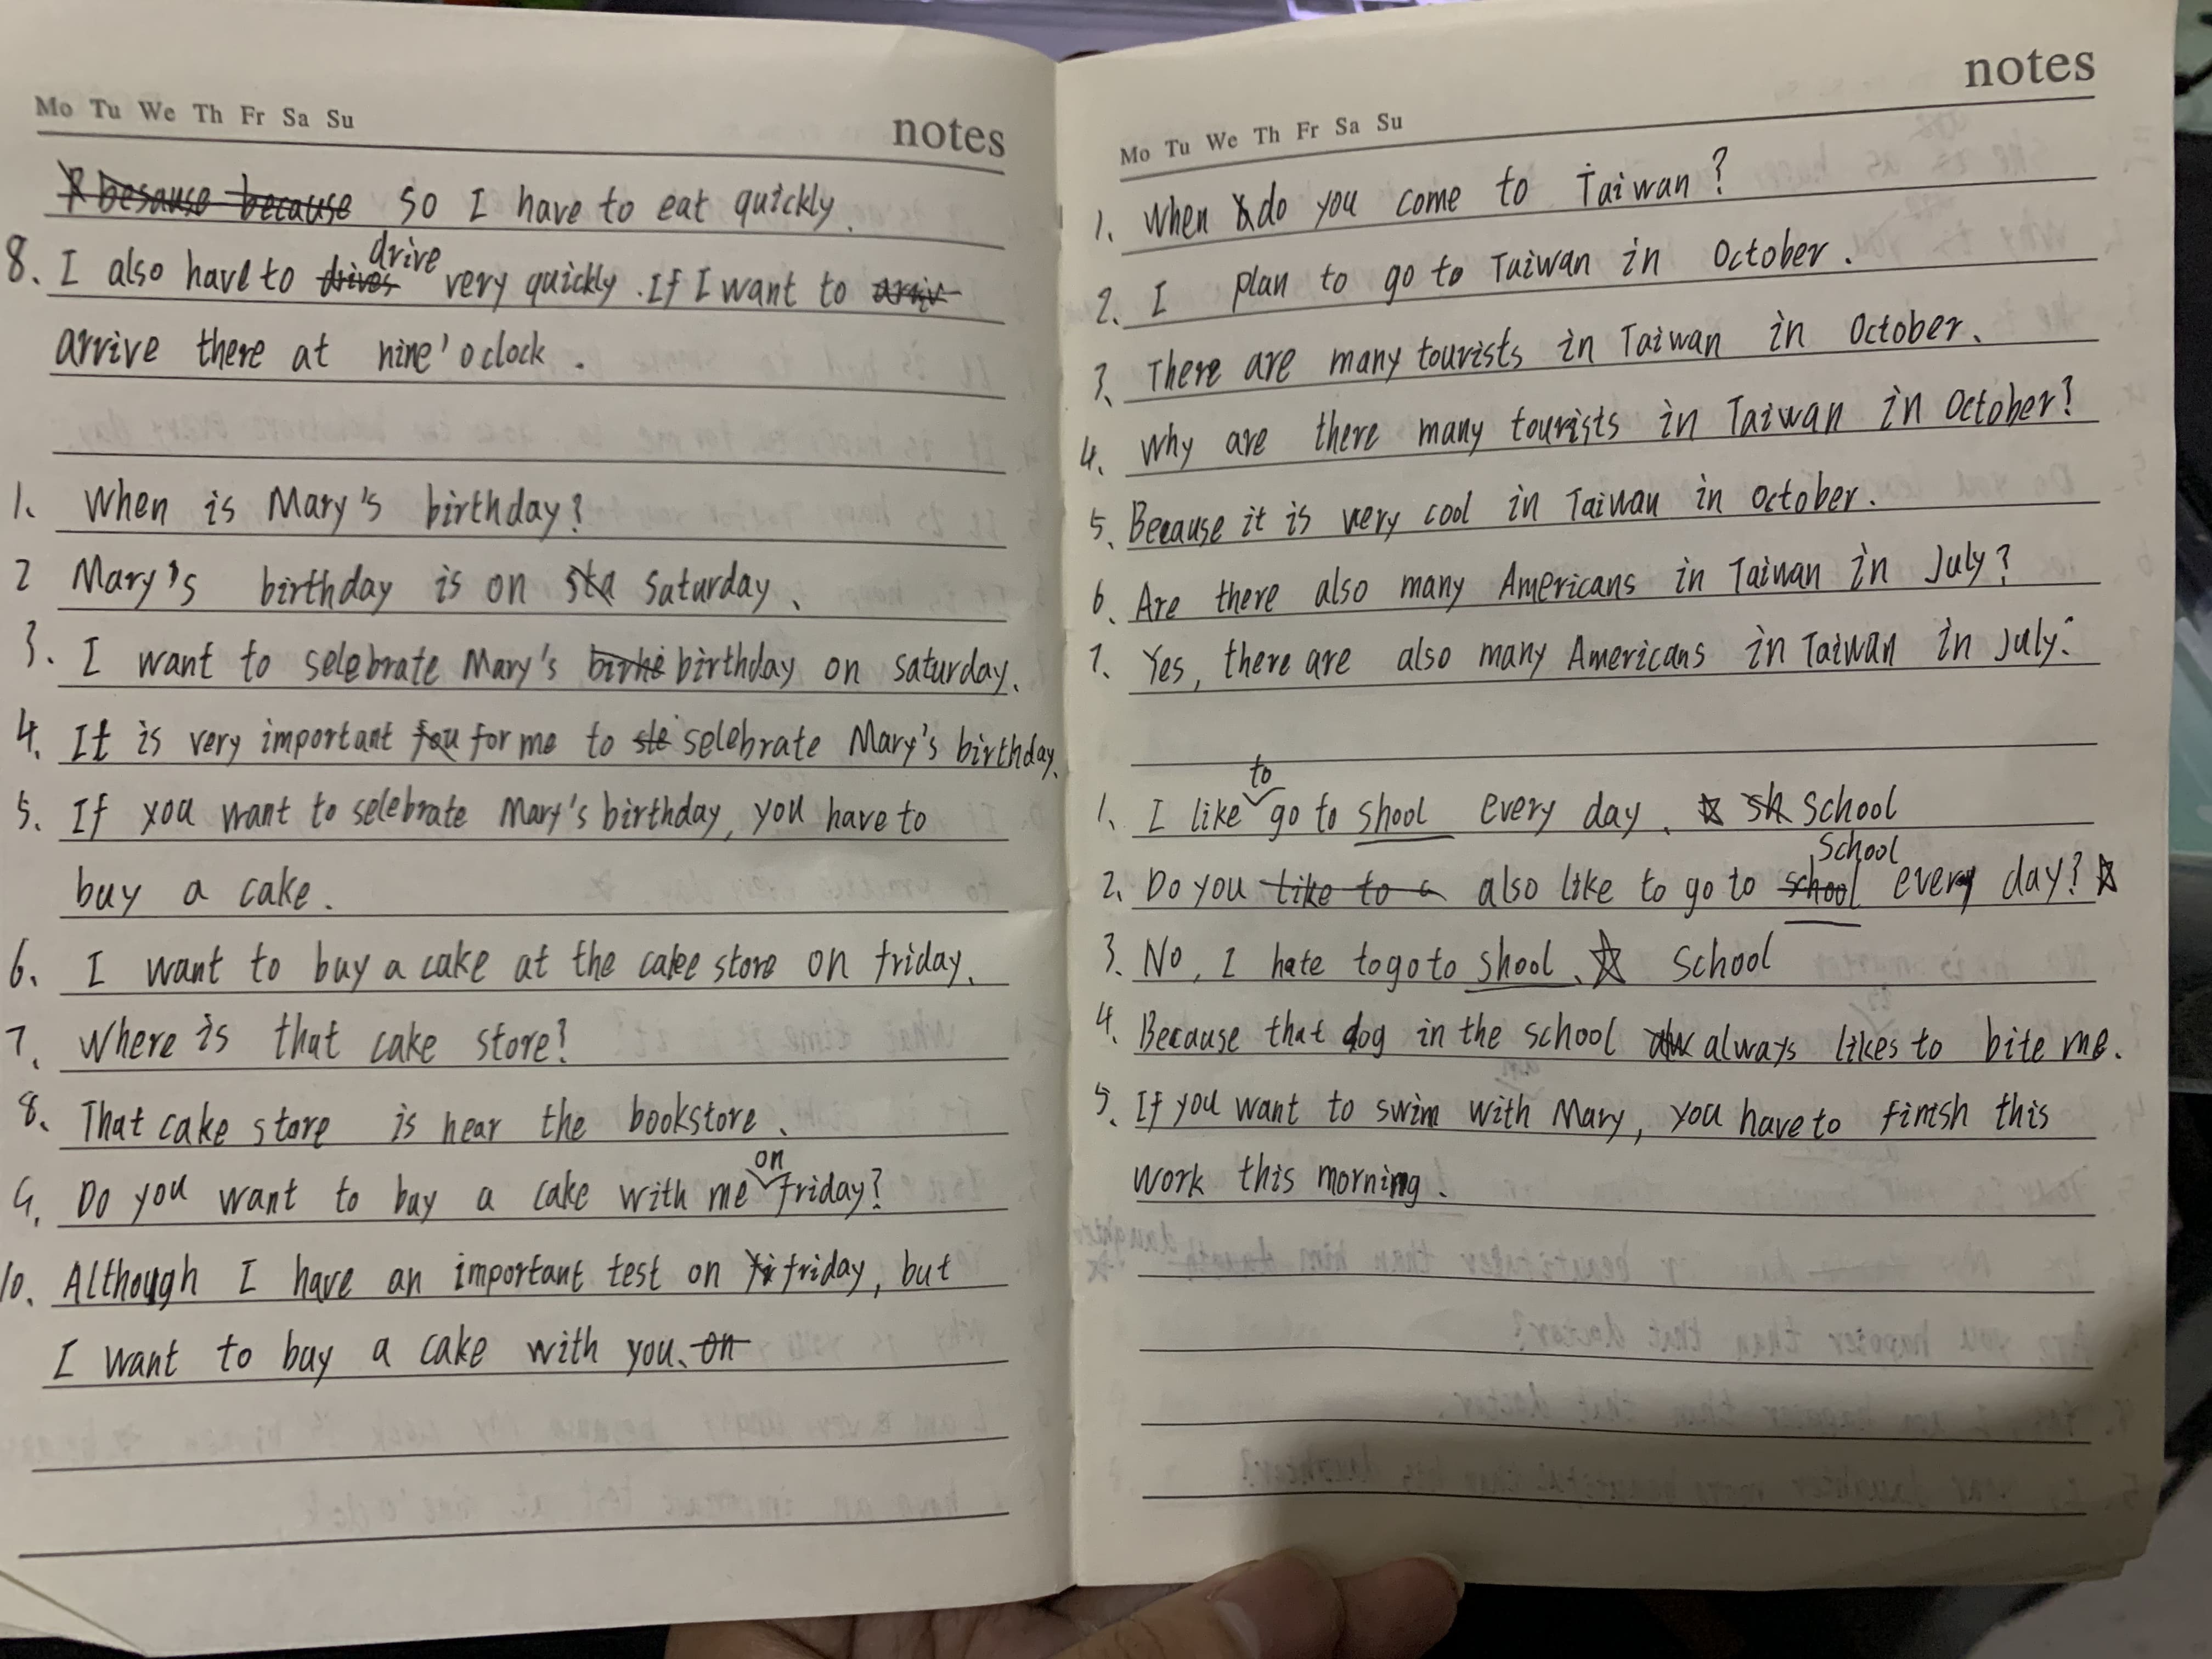 Mo Tu We Th Fr Sa Su notes
because so I have to eat quickly.
drive
8. I also have to drives very quickly. If I want to arriv
arrive there at nine'oclock.
1. When is Mary's birthday?
2 Mary's birthday is on sta saturday.
3. I want to selebrate Mary's birthday on saturday.
4. It is very important for me to sle selebrate Mary's birthday.
5. If you want to selebrate Mary's birthday, you have to
buy a cake.
6. I want to buy a cake at the cake store on friday.
7. Where is that cake store?
8. That cake store is near the bookstore.
on
9. Do you want to buy a cake with me friday?
10. Although I have an important test on friday, but
I want to buy a cake with you. on
Mo Tu We Th Fr Sa Su notes
1. When do you come to Taiwan?
2. I plan to go to Taiwan in October.
3. There are many tourists in Taiwan in October.
4. Why are there many tourists in Taiwan in October?
5. Because it is very cool in Taiwan in October.
6. Are there also many Americans in Taiwan in July?
7. Yes, there are also many Americans in Taiwan in July.
to
1. I like go to shool every day. ☆ sh school
School
2. Do you like to also like to go to school every day? ☆
3. No, I hate to go to shool. ☆ school
4. Because that dog in the school always likes to bite me.
5. If you want to swim with Mary, you have to finish this
work this morning.